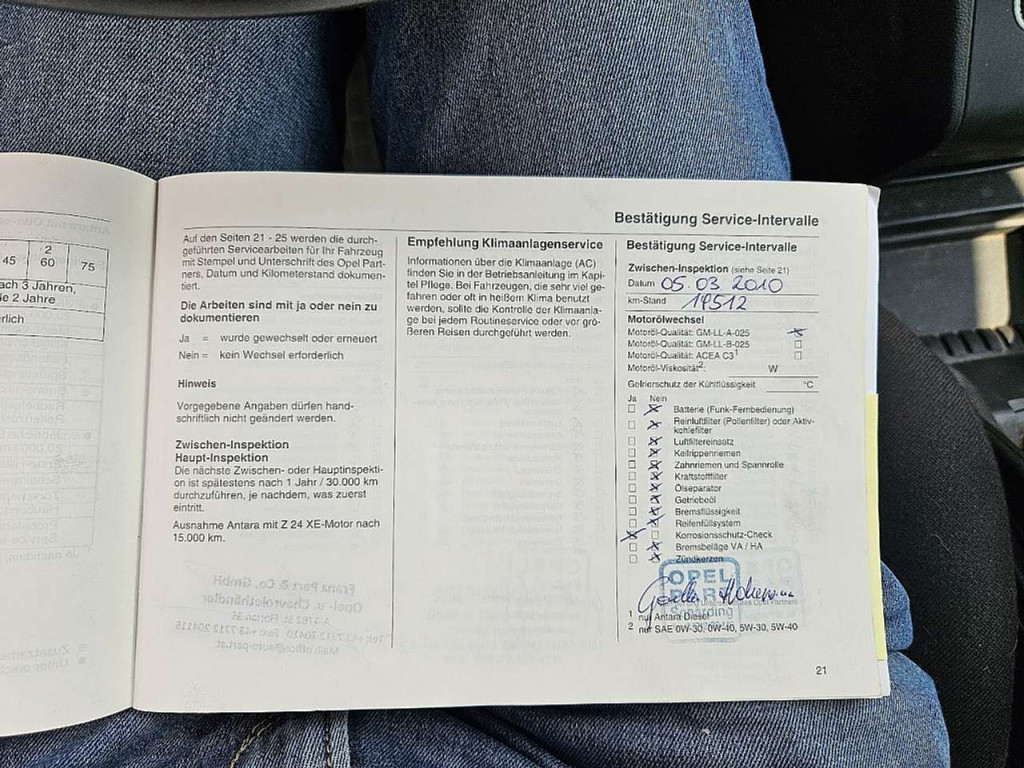 45
2
60
75
ach 3 Jahren,
le 2 Jahre
erlich
Bestätigung Service-Intervalle
Auf den Seiten 21 - 25 werden die durch-
geführten Servicearbeiten für Ihr Fahrzeug
mit Stempel und Unterschrift des Opel Part-
ners, Datum und Kilometerstand dokumen-
tiert.
Die Arbeiten sind mit ja oder nein zu
dokumentieren
Ja = wurde gewechselt oder erneuert
Nein = kein Wechsel erforderlich
Hinweis
Vorgegebene Angaben dürfen hand-
schriftlich nicht geändert werden.
Zwischen-Inspektion
Haupt-Inspektion
Die nächste Zwischen- oder Hauptinspekti-
on ist spätestens nach 1 Jahr / 30.000 km
durchzuführen, je nachdem, was zuerst
eintritt.
Ausnahme Antara mit Z 24 XE-Motor nach
15.000 km.
Empfehlung Klimaanlagenservice
Informationen über die Klimaanlage (AC)
finden Sie in der Betriebsanleitung im Kapi-
tel Pflege. Bei Fahrzeugen, die sehr viel ge-
fahren oder oft in heißem Klima benutzt
werden, sollte die Kontrolle der Klimaanla-
ge bei jedem Routineservice oder vor grö-
ßeren Reisen durchgeführt werden.
Bestätigung Service-Intervalle
Zwischen-Inspektion (siehe Seite 21)
Datum 05.03 2010
km-Stand 19512
Motorölwechsel
Motoröl-Qualität: GM-LL-A-025
Motoröl-Qualität: GM-LL-B-025
Motoröl-Qualität: ACEA C3¹
Motoröl-Viskosität²: W
Gefrierschutz der Kühlflüssigkeit °C
Ja Nein
Batterie (Funk-Fernbedienung)
Reinluftfilter (Pollenfilter) oder Aktiv-
kohlefilter
Luftfiltereinsatz
Keilrippenriemen
Zahnriemen und Spannrolle
Kraftstofffilter
Ölseparator
Getriebeöl
Bremsflüssigkeit
Reifenfüllsystem
Korrosionsschutz-Check
Bremsbeläge VA / HA
Zündkerzen
OPEL
PART
Schärding
des Opel Partners
1 nur Antara Diesel
2 nur SAE 0W-30, 0W-40, 5W-30, 5W-40
21